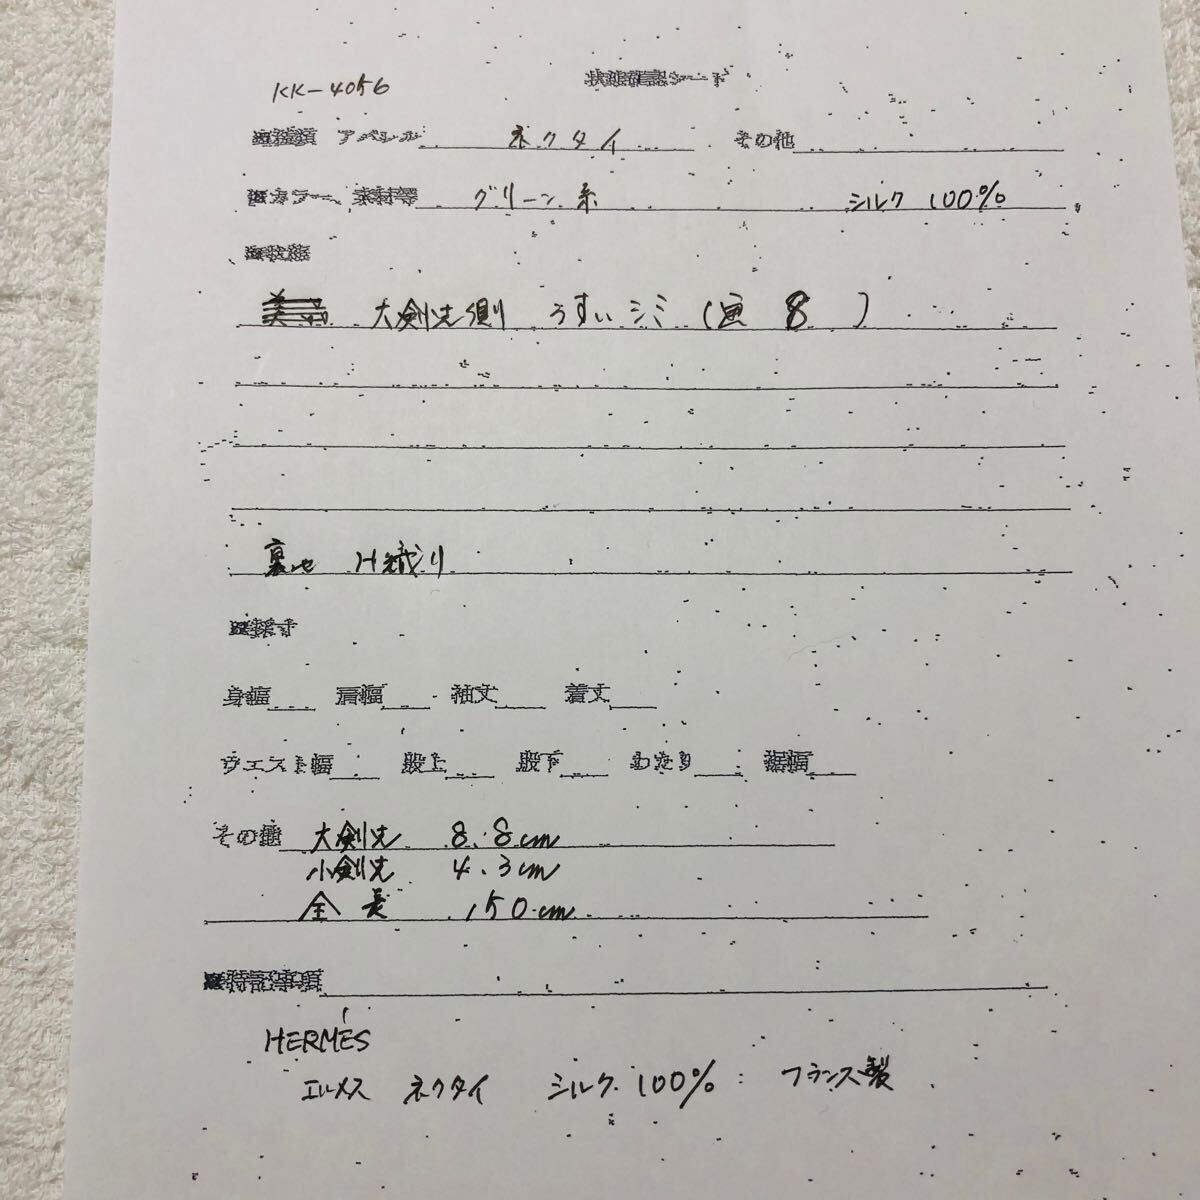 KK-4056
状態確認シート
アパレル ネクタイ その他
カラー、素材等 グリーン系 シルク 100%
状態
大剣先側 うすいシミ ( 8 )
裏地 H織り
採寸
身幅 肩幅 袖丈 着丈
ウエスト幅 股上 股下 わたり 裾幅
その他 大剣先 8.8cm
小剣先 4.3cm
全長 150cm
特記事項
HERMÈS
エルメス ネクタイ シルク 100% フランス製